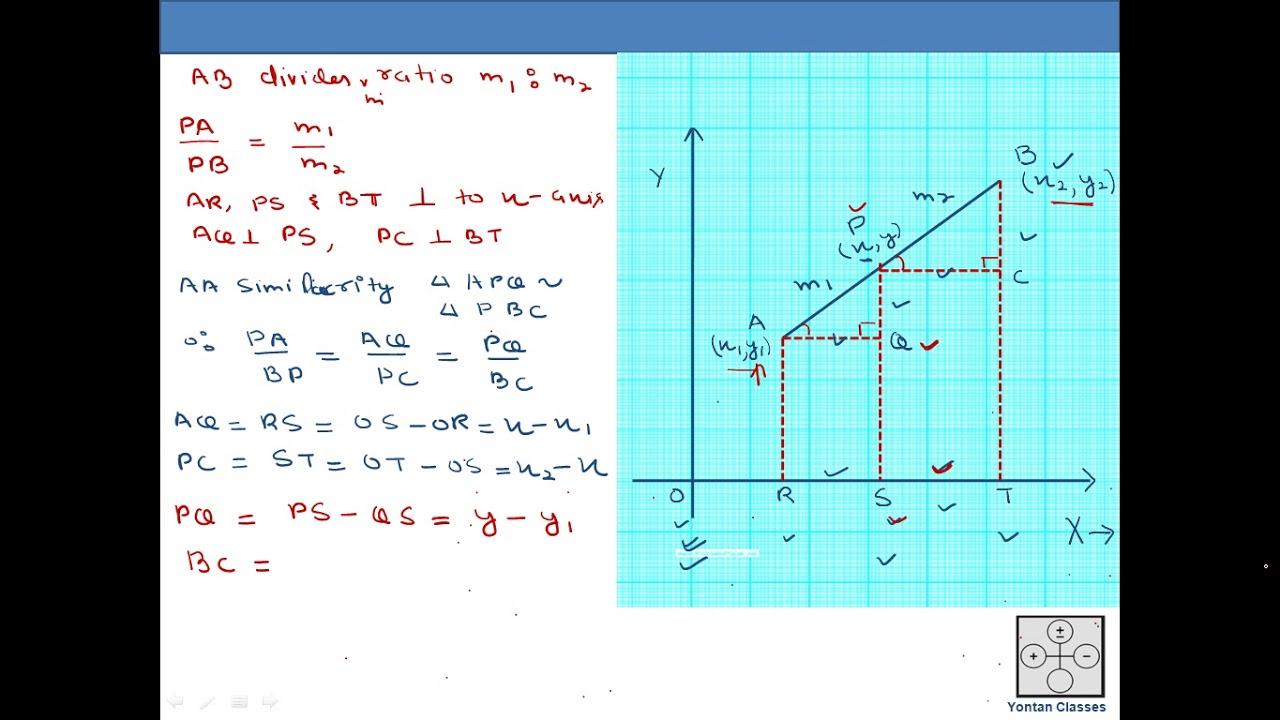 AB divides in ratio m₁ : m₂
PA/PB = m₁/m₂
AR, PS & BT ⊥ to x-axis
AQ ⊥ PS, PC ⊥ BT
AA similarity △ APQ ~
△ PBC
∴ PA/BP = AQ/PC = PQ/BC
AQ = RS = OS - OR = x - x₁
PC = ST = OT - OS = x₂ - x
PQ = PS - QS = y - y₁
BC =
Y
B
(x₂, y₂)
m₂
P
(x, y)
C
m₁
A
(x₁, y₁)
Q
O R S T
X →
+ − ±
Yontan Classes